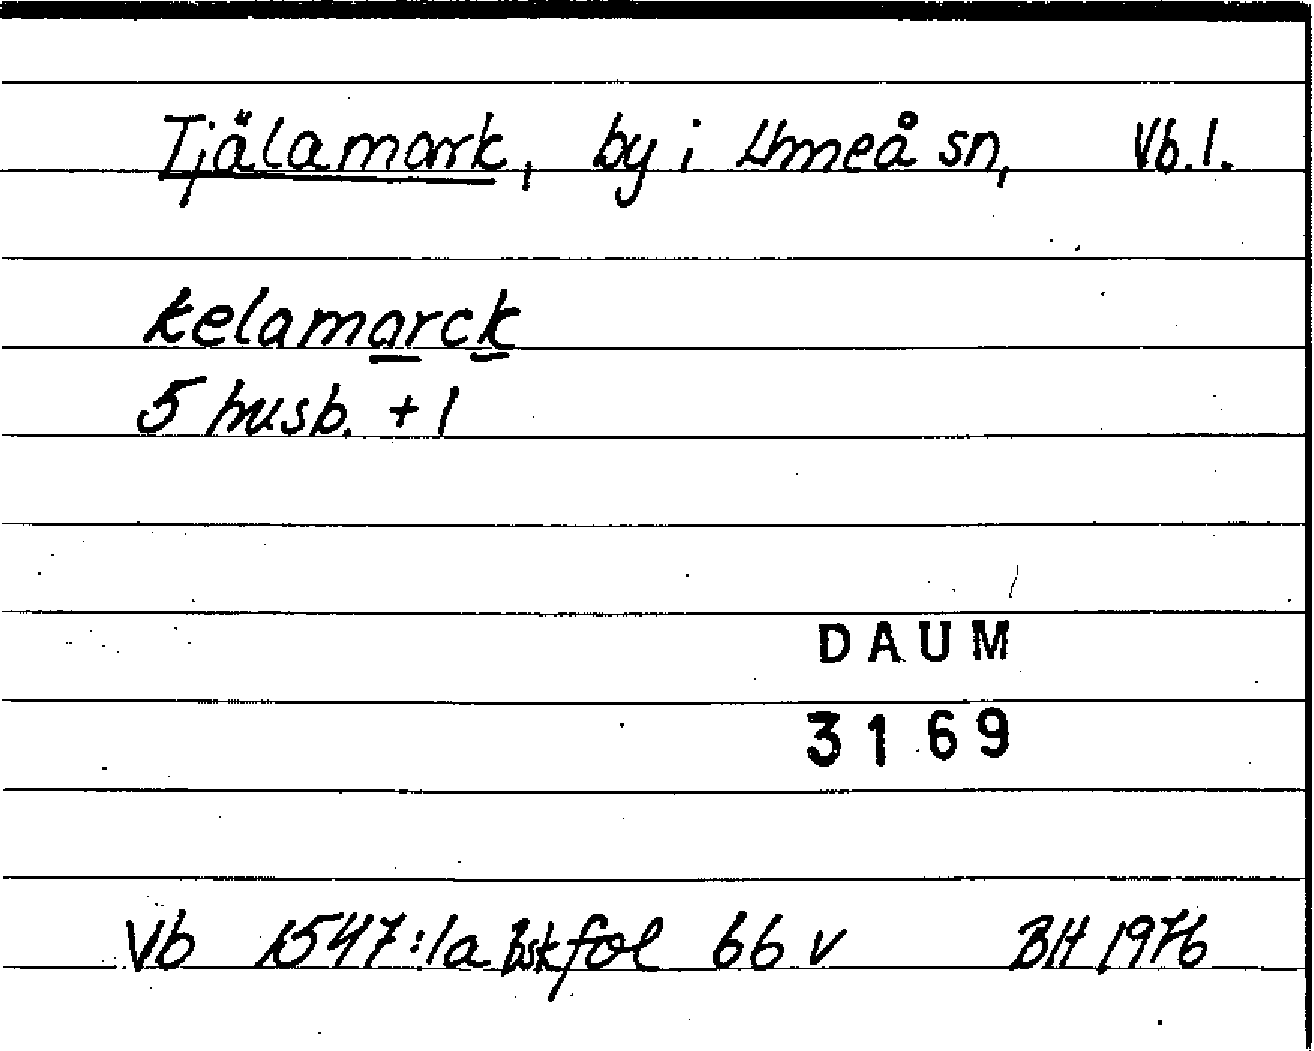 Tjälamark, by i Umeå sn, Vb.l.
kelamarck
5 husb. + 1
DAUM
3169
Vb 1547:1a bskfol 66 v BH 1976